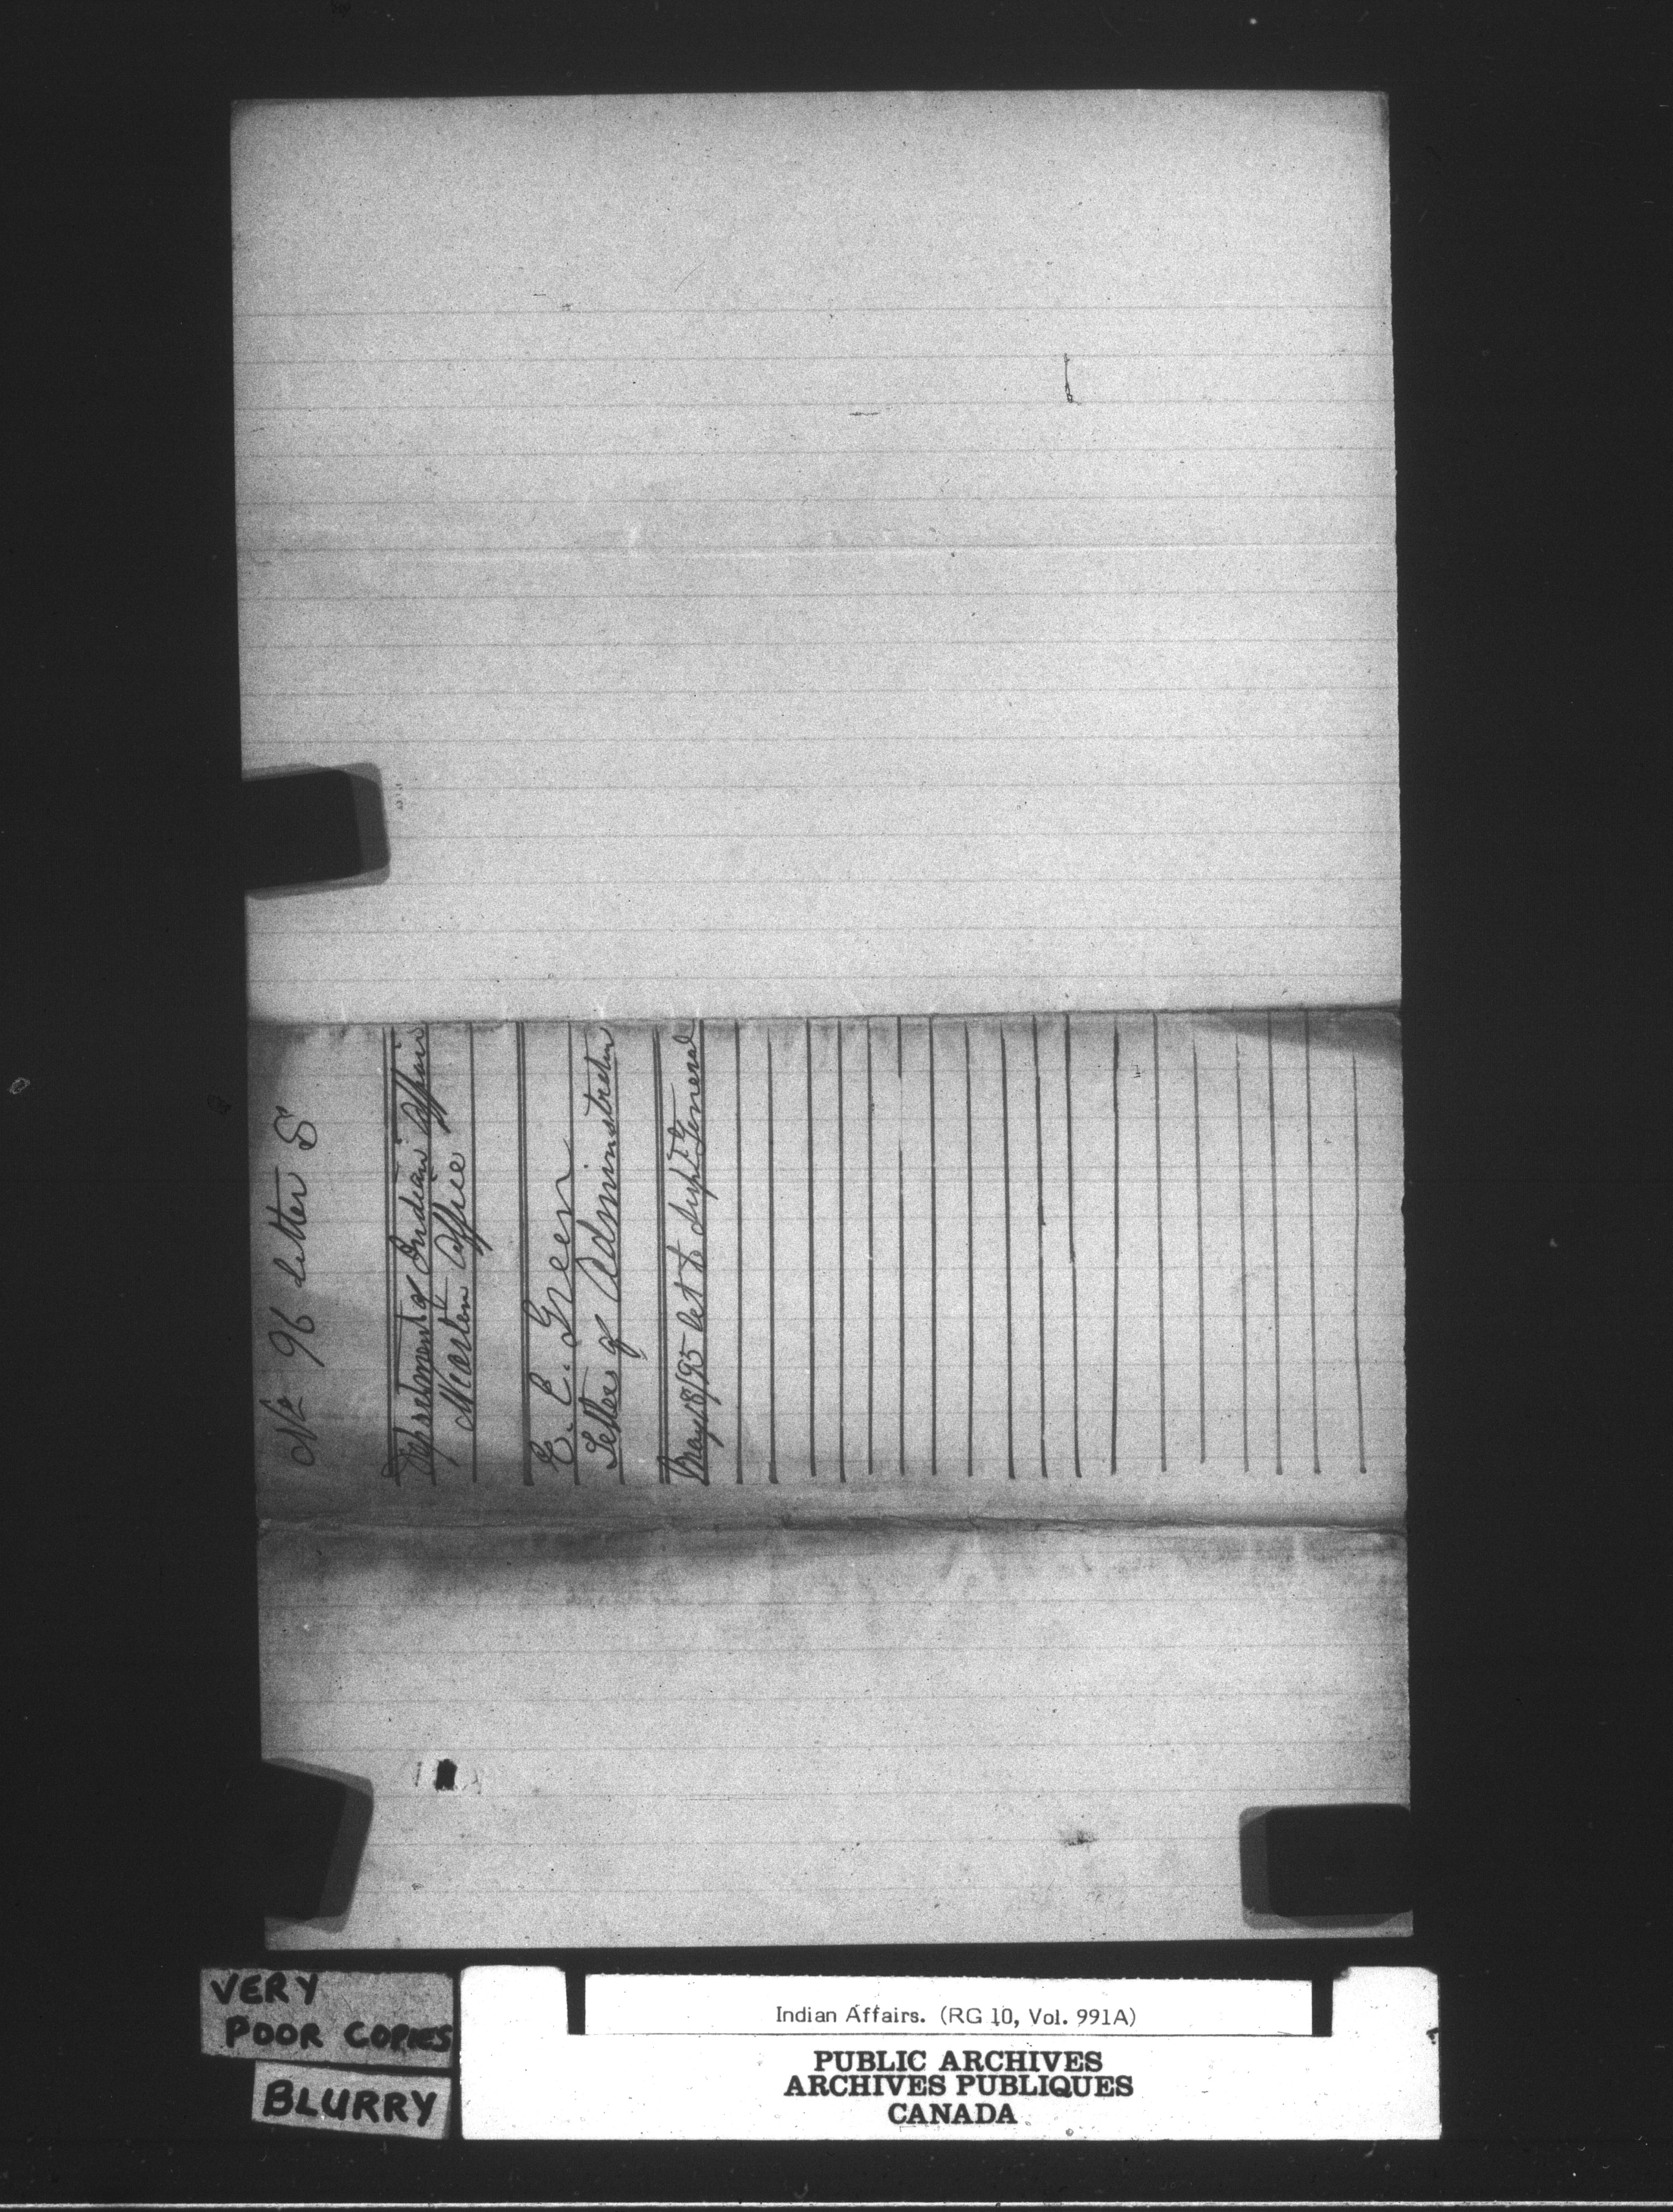 No 96 Letter S
Department of Indian Affairs
Western Office
E. E. Green
Letters of Administration
May 18/95 Let to Supt General
VERY
POOR COPIES
BLURRY
Indian Affairs. (RG 10, Vol. 991A)
PUBLIC ARCHIVES
ARCHIVES PUBLIQUES
CANADA